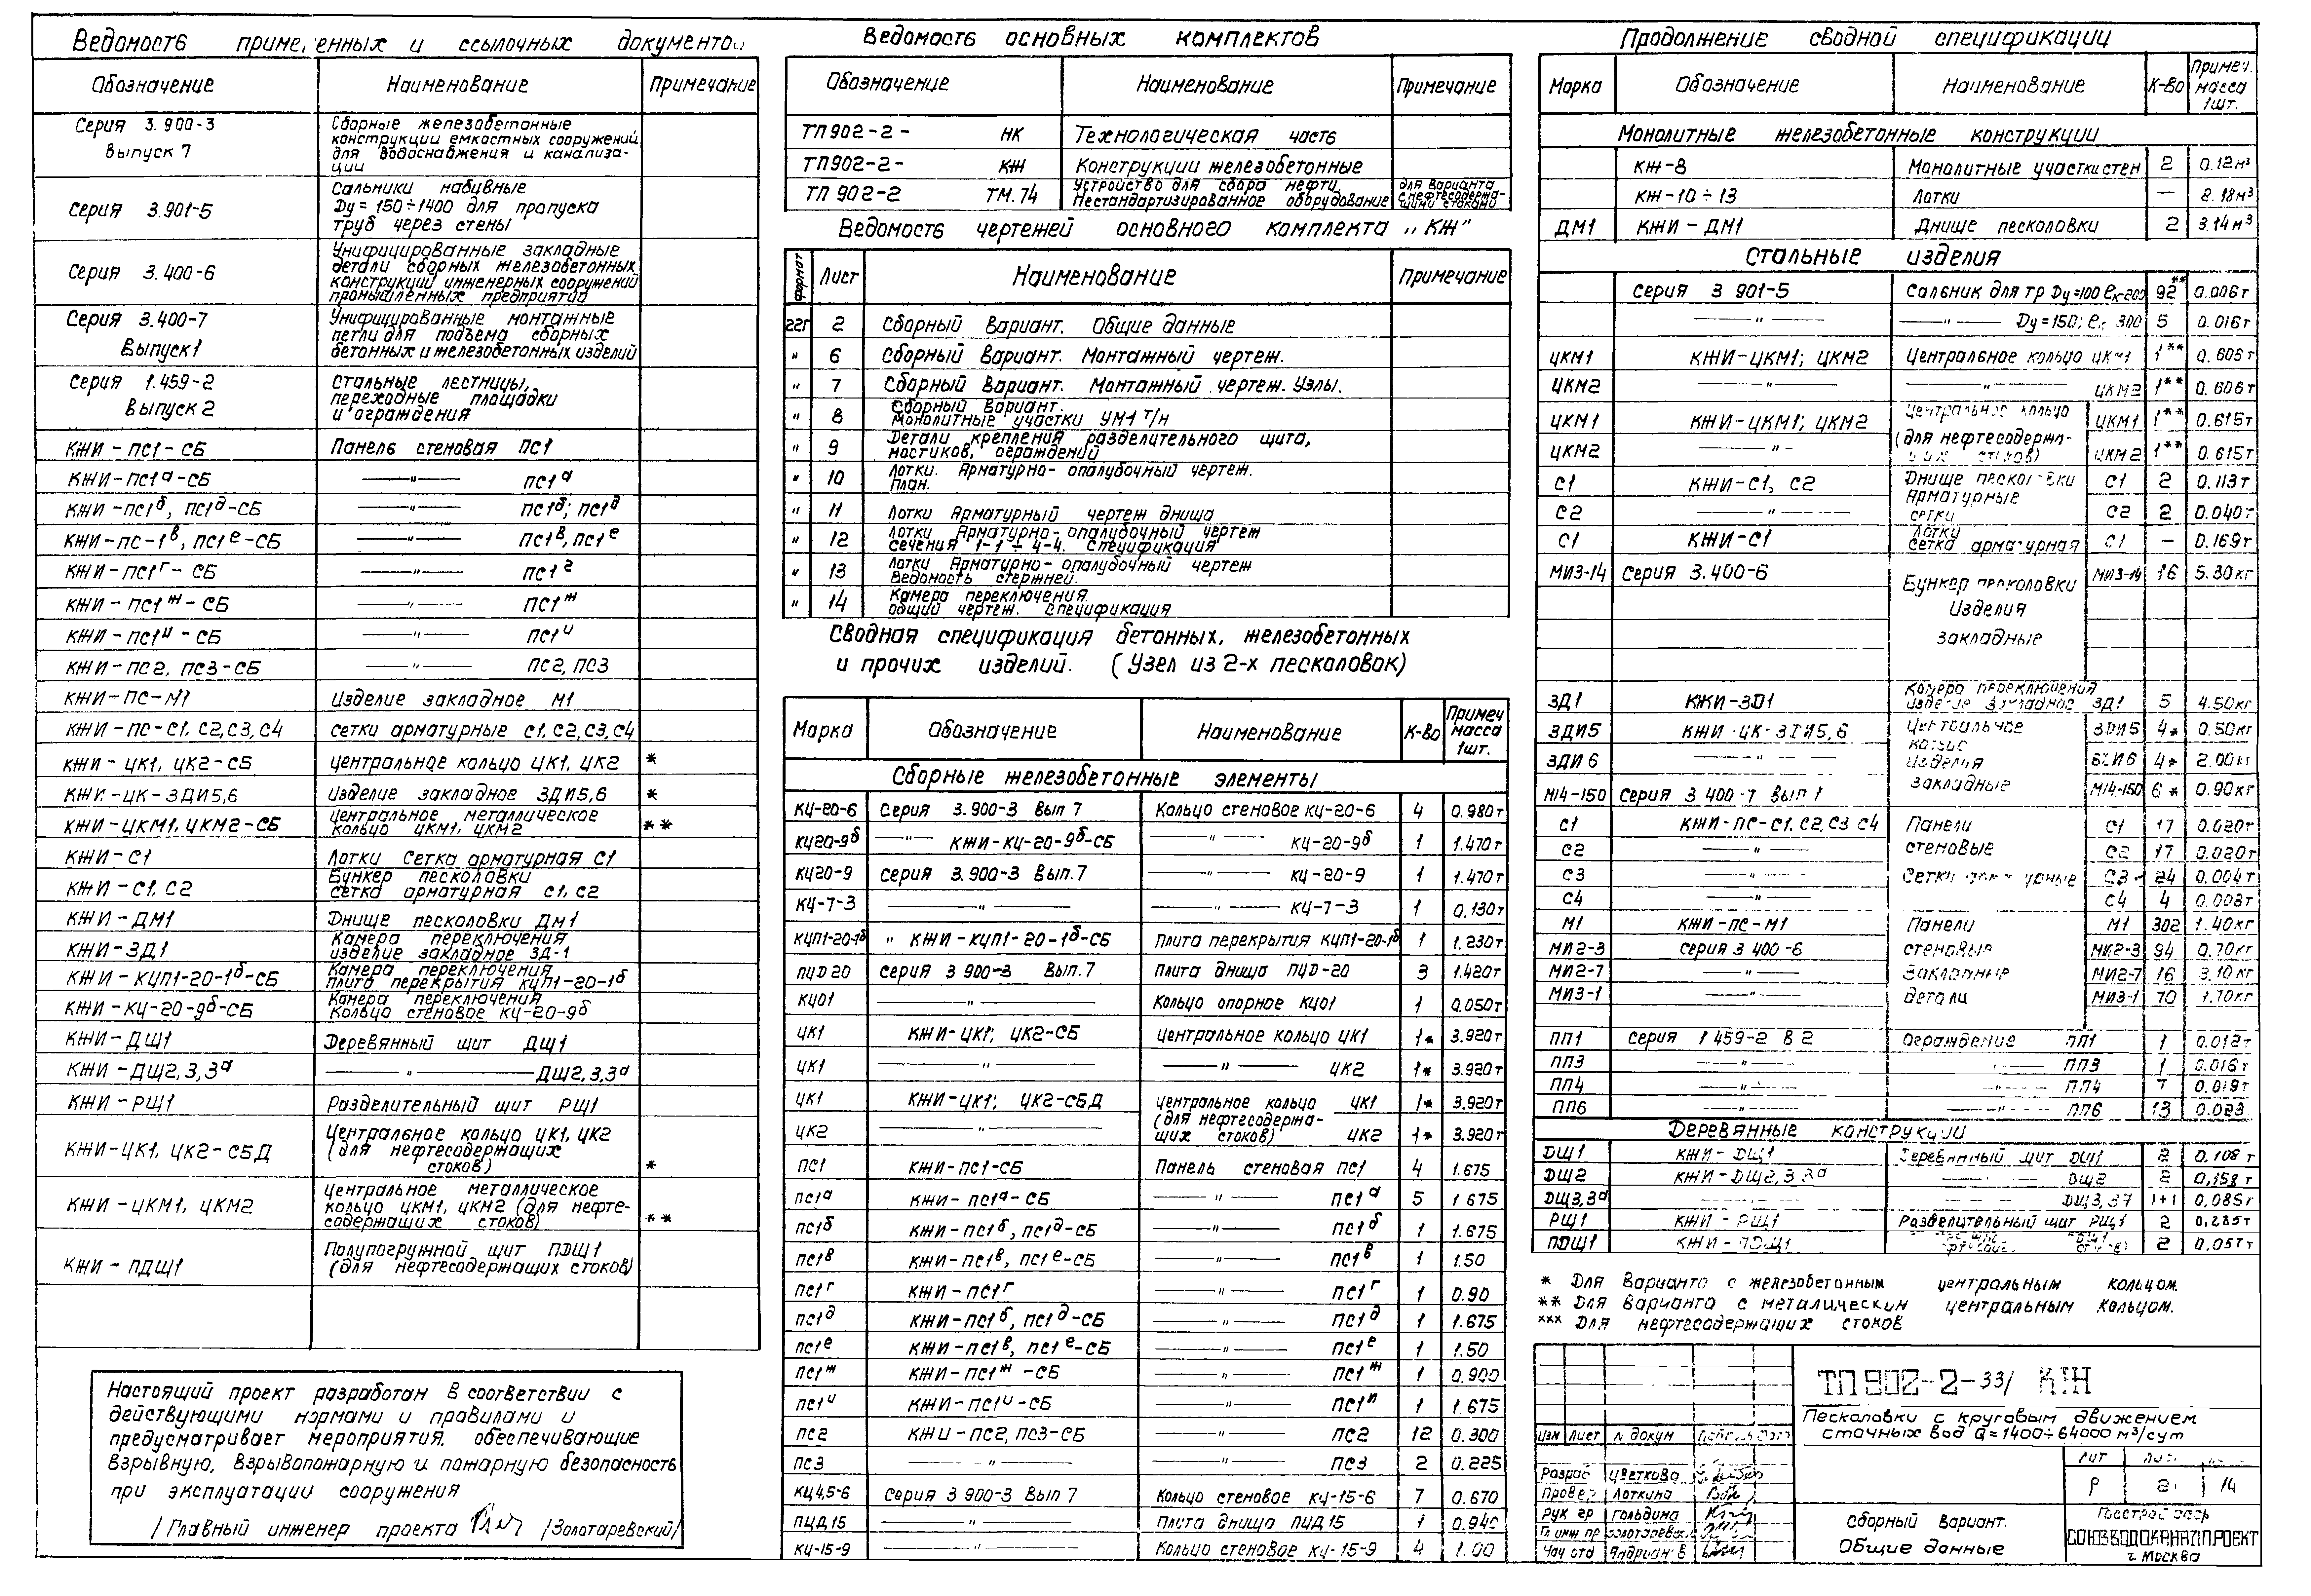 Ведомость примененных и ссылочных документов
Обозначение Наименование Примечание
Серия 3.900-3 выпуск 7 Сборные железобетонные
конструкции емкостных сооружений
для водоснабжения и канализа-
ции
Серия 3.901-5 Сальники набивные
Dy=150÷1400 для пропуска
труб через стены
Серия 3.400-6 Унифицированные закладные
детали сборных железобетонных
конструкций инженерных сооружений
промышленных предприятий
Серия 3.400-7 Выпуск 1 Унифицированные монтажные
петли для подъема сборных
бетонных и железобетонных изделий
Серия 1.459-2 Выпуск 2 Стальные лестницы,
переходные площадки
и ограждения
КЖИ-ПС1-СБ Панель стеновая ПС1
КЖИ-ПС1а-СБ —"— ПС1а
КЖИ-ПС1б, ПС1д-СБ —"— ПС1б; ПС1д
КЖИ-ПС-1в, ПС1е-СБ —"— ПС1в, ПС1е
КЖИ-ПС1г-СБ —"— ПС1г
КЖИ-ПС1ж-СБ —"— ПС1ж
КЖИ-ПС1и-СБ —"— ПС1и
КЖИ-ПС2, ПС3-СБ —"— ПС2, ПС3
КЖИ-ПС-М1 Изделие закладное М1
КЖИ-ПС-С1, С2, С3, С4 Сетки арматурные С1, С2, С3, С4
КЖИ-ЦК1, ЦК2-СБ Центральное кольцо ЦК1, ЦК2 *
КЖИ-ЦК-ЗДИ5,6 Изделие закладное ЗДИ5,6 *
КЖИ-ЦКМ1, ЦКМ2-СБ Центральное металлическое
кольцо ЦКМ1, ЦКМ2 **
КЖИ-С1 Лотки Сетка арматурная С1
КЖИ-С1, С2 Бункер песколовки
сетка арматурная С1, С2
КЖИ-ДМ1 Днище песколовки ДМ1
КЖИ-ЗД1 Камера переключения
изделие закладное ЗД-1
КЖИ-КЦП1-20-1б-СБ Камера переключения
плита перекрытия КЦП1-20-1б
КЖИ-КЦ-20-9б-СБ Камера переключения
Кольцо стеновое КЦ-20-9б
КЖИ-ДЩ1 Деревянный щит ДЩ1
КЖИ-ДЩ2,3,3а —"— ДЩ2,3,3а
КЖИ-РЩ1 Разделительный щит РЩ1
КЖИ-ЦК1, ЦК2-СБД Центральное кольцо ЦК1, ЦК2
(для нефтесодержащих
стоков) *
КЖИ-ЦКМ1, ЦКМ2 Центральное металлическое
кольцо ЦКМ1, ЦКМ2 (для нефте-
содержащих стоков) **
КЖИ-ПДЩ1 Полупогружной щит ПДЩ1
(для нефтесодержащих стоков)
Настоящий проект разработан в соответствии с
действующими нормами и правилами и
предусматривает мероприятия, обеспечивающие
взрывную, взрывопожарную и пожарную безопасность
при эксплуатации сооружения
/Главный инженер проекта /Золотаревский/
Ведомость основных комплектов
Обозначение Наименование Примечание
ТП902-2- НК Технологическая часть
ТП902-2- КЖ Конструкции железобетонные
ТП 902-2 ТМ.74 Устройство для сбора нефти
Нестандартизированное оборудование для варианта
с нефтесодержа-
щими стоками
Ведомость чертежей основного комплекта „КЖ"
формат Лист Наименование Примечание
22г 2 Сборный вариант. Общие данные
" 6 Сборный вариант. Монтажный чертеж.
" 7 Сборный вариант. Монтажный чертеж. Узлы.
" 8 Сборный вариант.
Монолитные участки УМ1 Т/Н
" 9 Детали крепления разделительного щита,
мостиков, ограждений
" 10 Лотки. Арматурно-опалубочный чертеж.
План.
" 11 Лотки Арматурный чертеж днища
" 12 Лотки Арматурно-опалубочный чертеж
сечения 1-1÷4-4. Спецификация
" 13 Лотки Арматурно-опалубочный чертеж
Ведомость стержней.
" 14 Камера переключения.
общий чертеж. спецификация
Сводная спецификация бетонных, железобетонных
и прочих изделий. (Узел из 2-х песколовок)
Марка Обозначение Наименование К-во Примеч масса 1шт.
Сборные железобетонные элементы
КЦ-20-6 Серия 3.900-3 Вып 7 Кольцо стеновое КЦ-20-6 4 0.980т
КЦ20-9б —"— КЖИ-КЦ-20-9б-СБ —"— КЦ-20-9б 1 1.470т
КЦ20-9 серия 3.900-3 Вып.7 —"— КЦ-20-9 1 1.470т
КЦ-7-3 —"— —"— КЦ-7-3 1 0.130т
КЦП1-20-1б " КЖИ-КЦП1-20-1б-СБ Плита перекрытия КЦП1-20-1б 1 1.230т
ПЦД20 серия 3 900-3 Вып.7 Плита днища ПЦД-20 3 1.420т
КЦО1 —"— Кольцо опорное КЦО1 1 0.050т
ЦК1 КЖИ-ЦК1; ЦК2-СБ Центральное кольцо ЦК1 1* 3.920т
ЦК1 —"— —"— ЦК2 1* 3.920т
ЦК1 КЖИ-ЦК1; ЦК2-СБД Центральное кольцо ЦК1 1* 3.920т
(для нефтесодержа-
ЦК2 —"— щих стоков) ЦК2 1* 3.920т
ПС1 КЖИ-ПС1-СБ Панель стеновая ПС1 4 1.675
ПС1а КЖИ-ПС1а-СБ —"— ПС1а 5 1 675
ПС1б КЖИ-ПС1б, ПС1д-СБ —"— ПС1б 1 1.675
ПС1в КЖИ-ПС1в, ПС1е-СБ —"— ПС1в 1 1.50
ПС1г КЖИ-ПС1г —"— ПС1г 1 0.90
ПС1д КЖИ-ПС1б, ПС1д-СБ —"— ПС1д 1 1.675
ПС1е КЖИ-ПС1в, ПС1е-СБ —"— ПС1е 1 1.50
ПС1ж КЖИ-ПС1ж-СБ —"— ПС1ж 1 0.900
ПС1и КЖИ-ПС1и-СБ —"— ПС1и 1 1.675
ПС2 КЖИ-ПС2, ПС3-СБ —"— ПС2 12 0.300
ПС3 —"— —"— ПС3 2 0.225
КЦ4,5-6 Серия 3 900-3 Вып 7 Кольцо стеновое КЦ-15-6 7 0.670
ПЦД15 —"— Плита днища ПЦД15 1 0.940
КЦ-15-9 —"— Кольцо стеновое КЦ-15-9 4 1.00
Продолжение сводной спецификации
Марка Обозначение Наименование К-во Примеч. масса 1шт.
Монолитные железобетонные конструкции
КЖ-8 Монолитные участки стен 2 0.12м³
КЖ-10÷13 Лотки — 8.18м³
ДМ1 КЖИ-ДМ1 Днище песколовки 2 3.14м³
Стальные изделия
Серия 3 901-5 Сальник для тр Dy=100 ℓк-200 92** 0.006т
—"— —"— Dy=150; ℓк 300 5 0.016т
ЦКМ1 КЖИ-ЦКМ1; ЦКМ2 Центральное кольцо ЦКМ1 1** 0.605т
ЦКМ2 —"— —"— ЦКМ2 1** 0.606т
ЦКМ1 КЖИ-ЦКМ1; ЦКМ2 Центральное кольцо ЦКМ1 1** 0.615т
(для нефтесодержа-
ЦКМ2 —"— щих стоков) ЦКМ2 1** 0.615т
С1 КЖИ-С1, С2 Днище песколовки С1 2 0.113т
Арматурные
С2 —"— сетки С2 2 0.040т
С1 КЖИ-С1 Лотки
Сетка арматурная С1 — 0.169т
МИ3-14 Серия 3.400-6 Бункер песколовки МИ3-14 16 5.30кг
Изделия
закладные
ЗД1 КЖИ-ЗД1 Камера переключения
изделие закладное ЗД1 5 4.50кг
ЗДИ5 КЖИ-ЦК-ЗДИ5,6 Центральное ЗДИ5 4* 0.50кг
кольцо
ЗДИ6 —"— Изделия ЗДИ6 4* 2.00кг
М14-150 Серия 3 400-7 Вып 1 закладные М14-150 6* 0.90кг
С1 КЖИ-ПС-С1, С2, С3 С4 Панели С1 17 0.020т
С2 —"— стеновые С2 17 0.020т
С3 —"— Сетки арматурные С3 24 0.004т
С4 —"— С4 4 0.008т
М1 КЖИ-ПС-М1 Панели М1 302 1.40кг
МИ2-3 серия 3 400-6 стеновые МИ2-3 94 0.70кг
МИ2-7 —"— Закладные МИ2-7 16 3.10кг
МИ3-1 —"— детали МИ3-1 70 1.70кг
ПП1 Серия 1 459-2 В 2 Ограждение ПП1 1 0.012т
ПП3 —"— —"— ПП3 1 0.016т
ПП4 —"— —"— ПП4 0.019т
ПП6 —"— —"— ПП6 13 0.023
Деревянные конструкции
ДЩ1 КЖИ-ДЩ1 Деревянный щит ДЩ1 2 0.108т
ДЩ2 КЖИ-ДЩ2,3 3а —"— ДЩ2 2 0,158т
ДЩ3,3а —"— —"— ДЩ3,3а 1+1 0.085т
РЩ1 КЖИ-РЩ1 Разделительный щит РЩ1 2 0,285т
ПДЩ1 КЖИ-ПДЩ1 2 0,057т
* Для варианта с железобетонным центральным кольцом.
** Для варианта с металическим центральным кольцом.
*** Для нефтесодержащих стоков
ТП902-2-331 КЖ
Песколовки с круговым движением
сточных вод Q=1400÷64000 м³/сут
Изм Лист N докум
Лит
Р 2 14
Разраб Цветкова
Провер Лоткина
Рук гр Гольдина
Гл инж пр Золотаревск.
Нач отд
Сборный вариант.
Общие данные
Госстрой СССР
СОЮЗВОДОКАНАЛПРОЕКТ
г. Москва